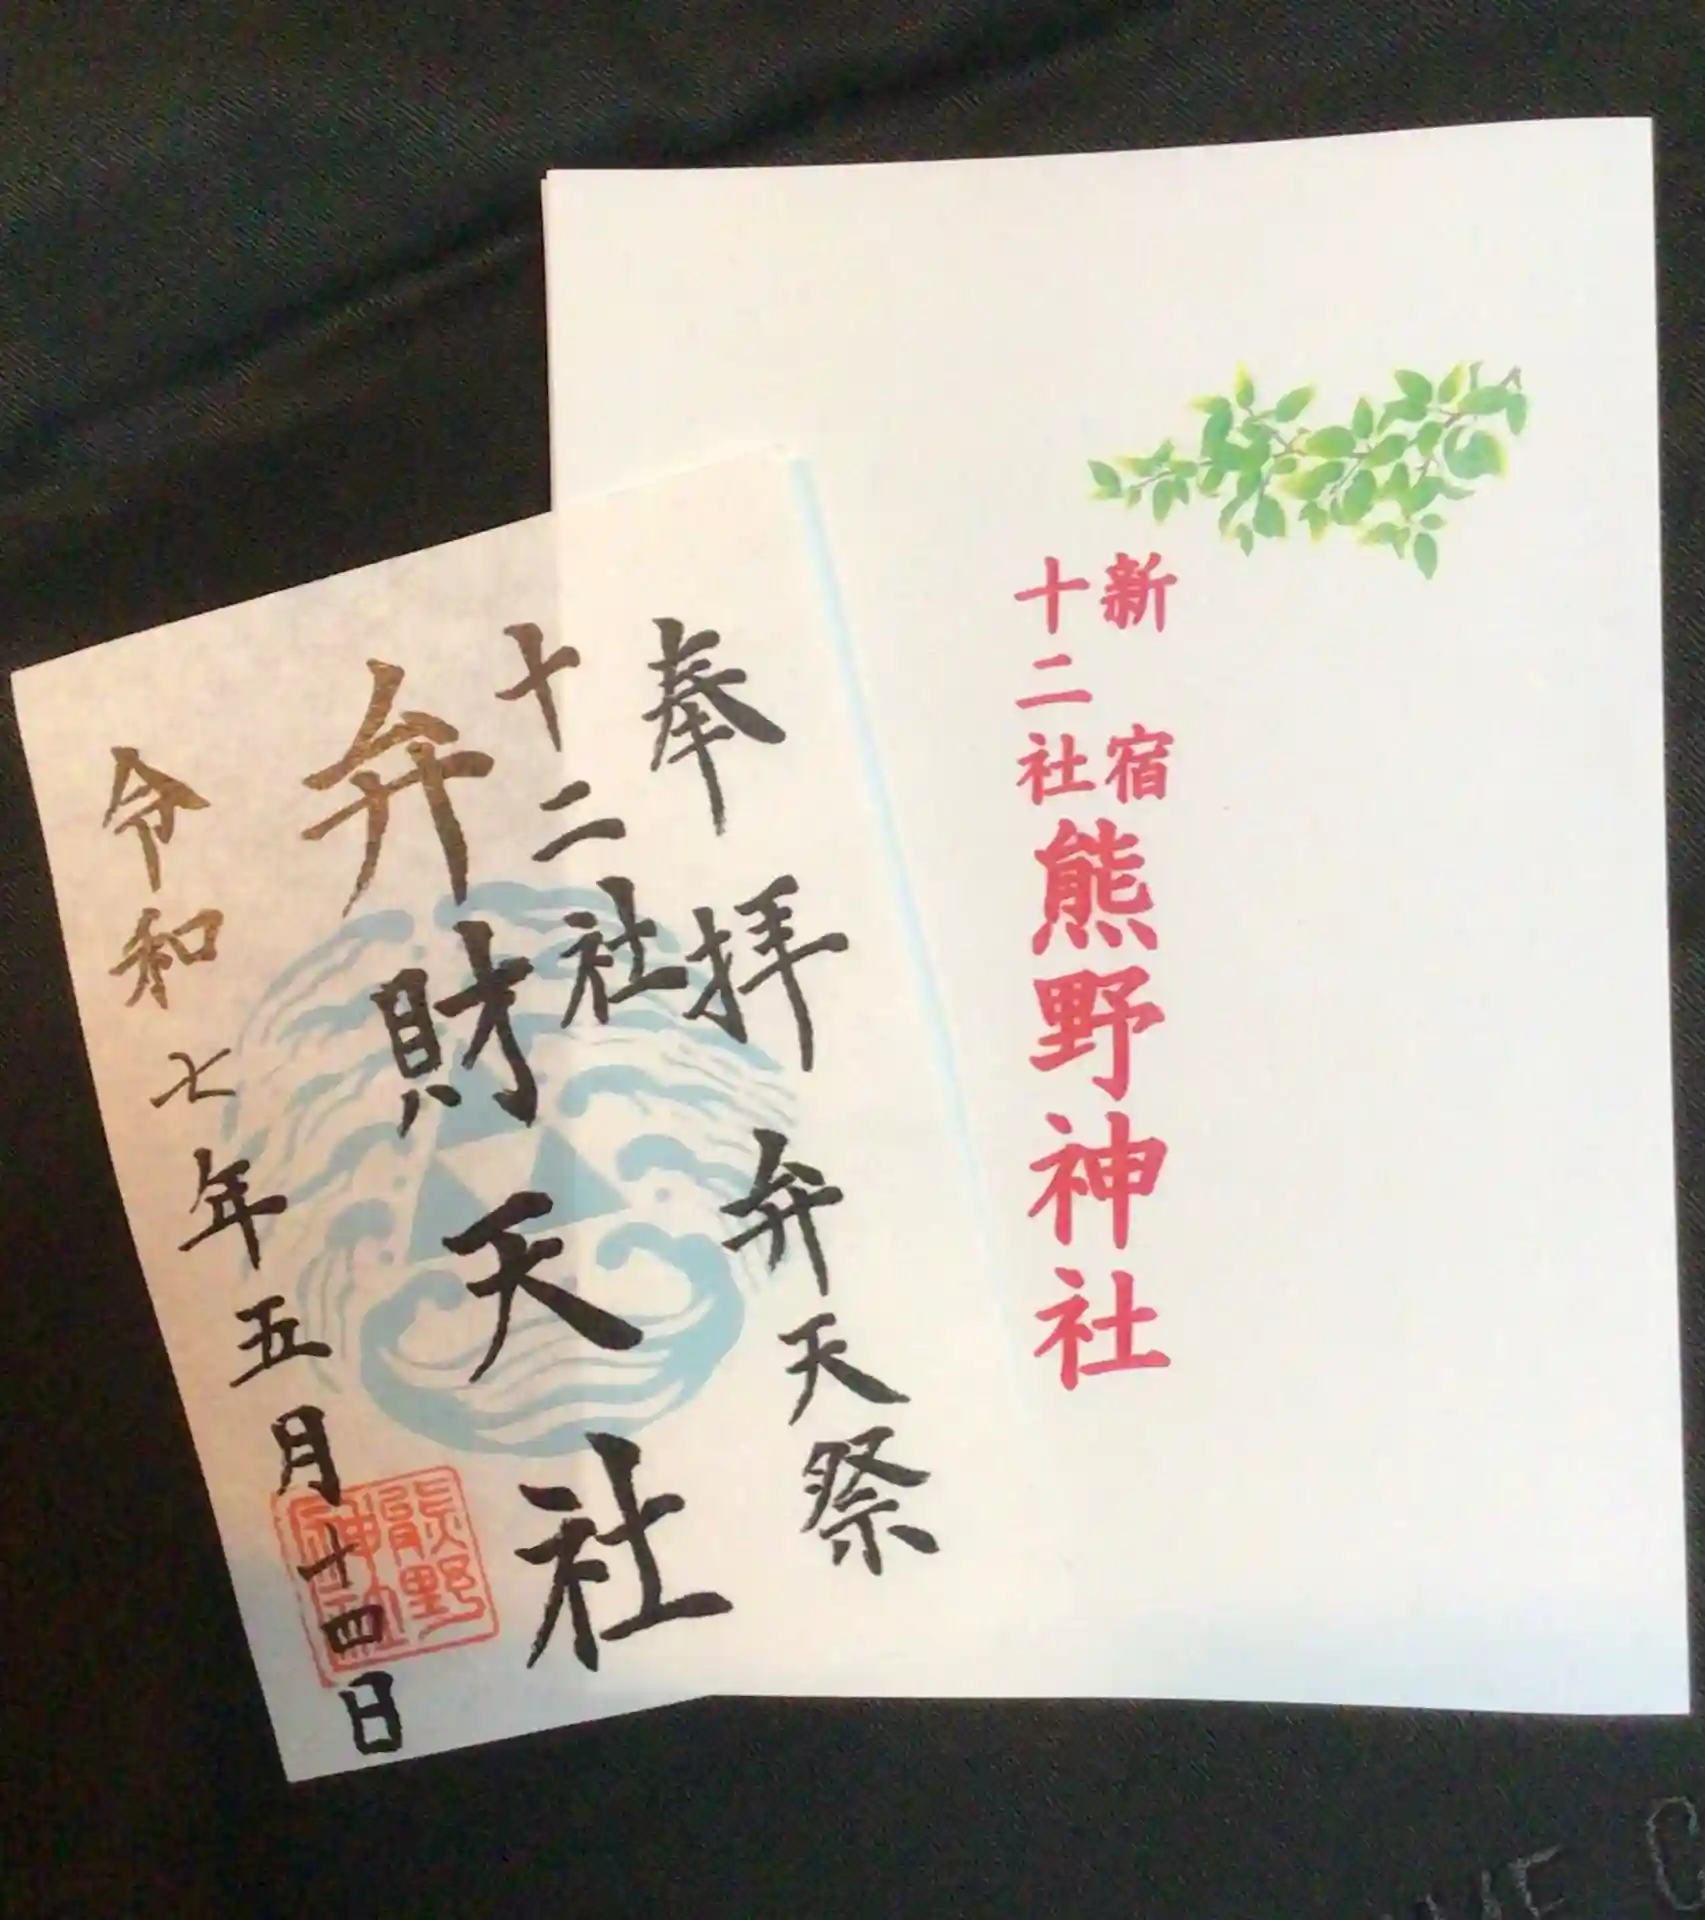 新宿
十二社
熊野神社
奉拝 弁天祭
十二社
弁財天社
令和七年五月十四日
熊野
神社